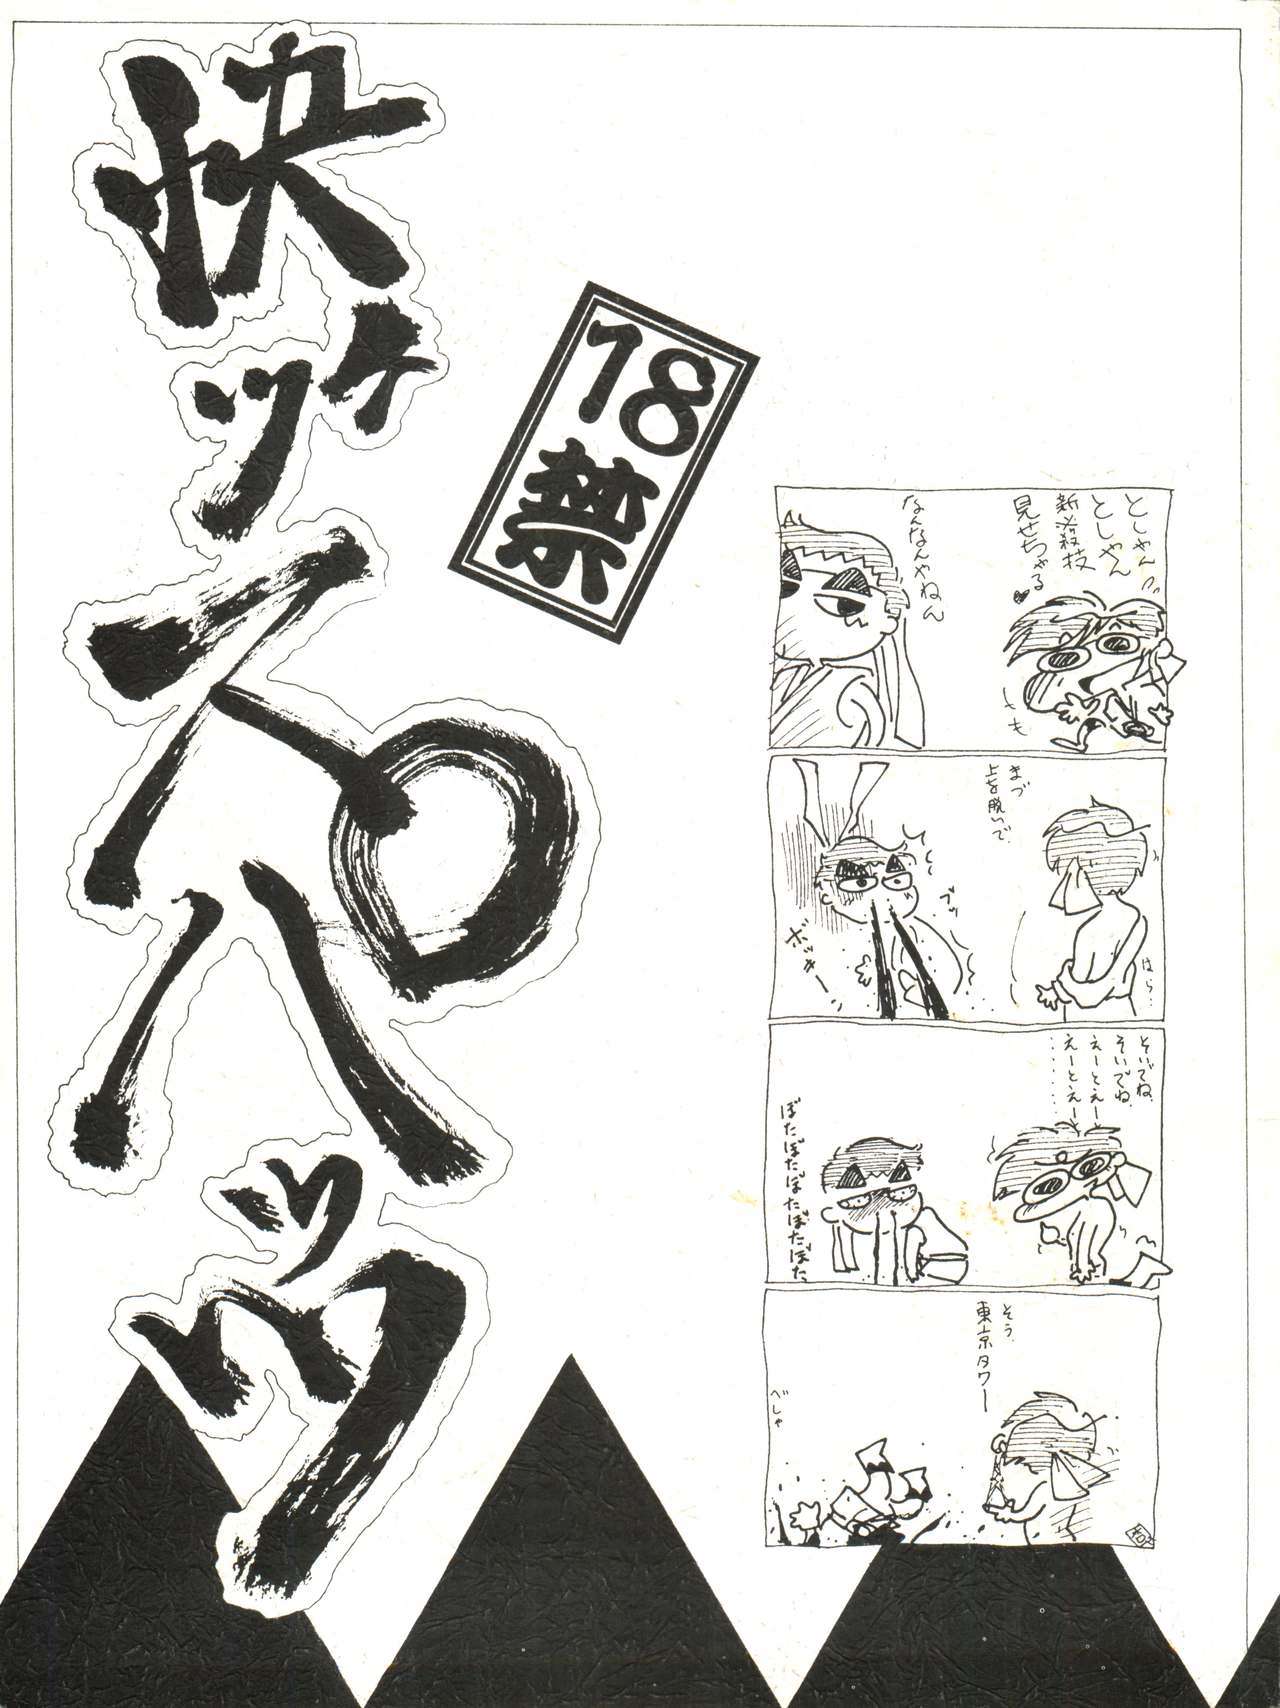 快ッチスペハッツ
18
禁
としゃん
としゃん
新必殺技
見せちゃる♥
なんなんやねん
まづ
上を脱いで
はら…
ブッ
ボッキーン
そいでね、
そいでね、
えーとえーと
えーとえーと
………
ぼたぼたぼたぼたぼた
そう、
東京タワー
べしゃ